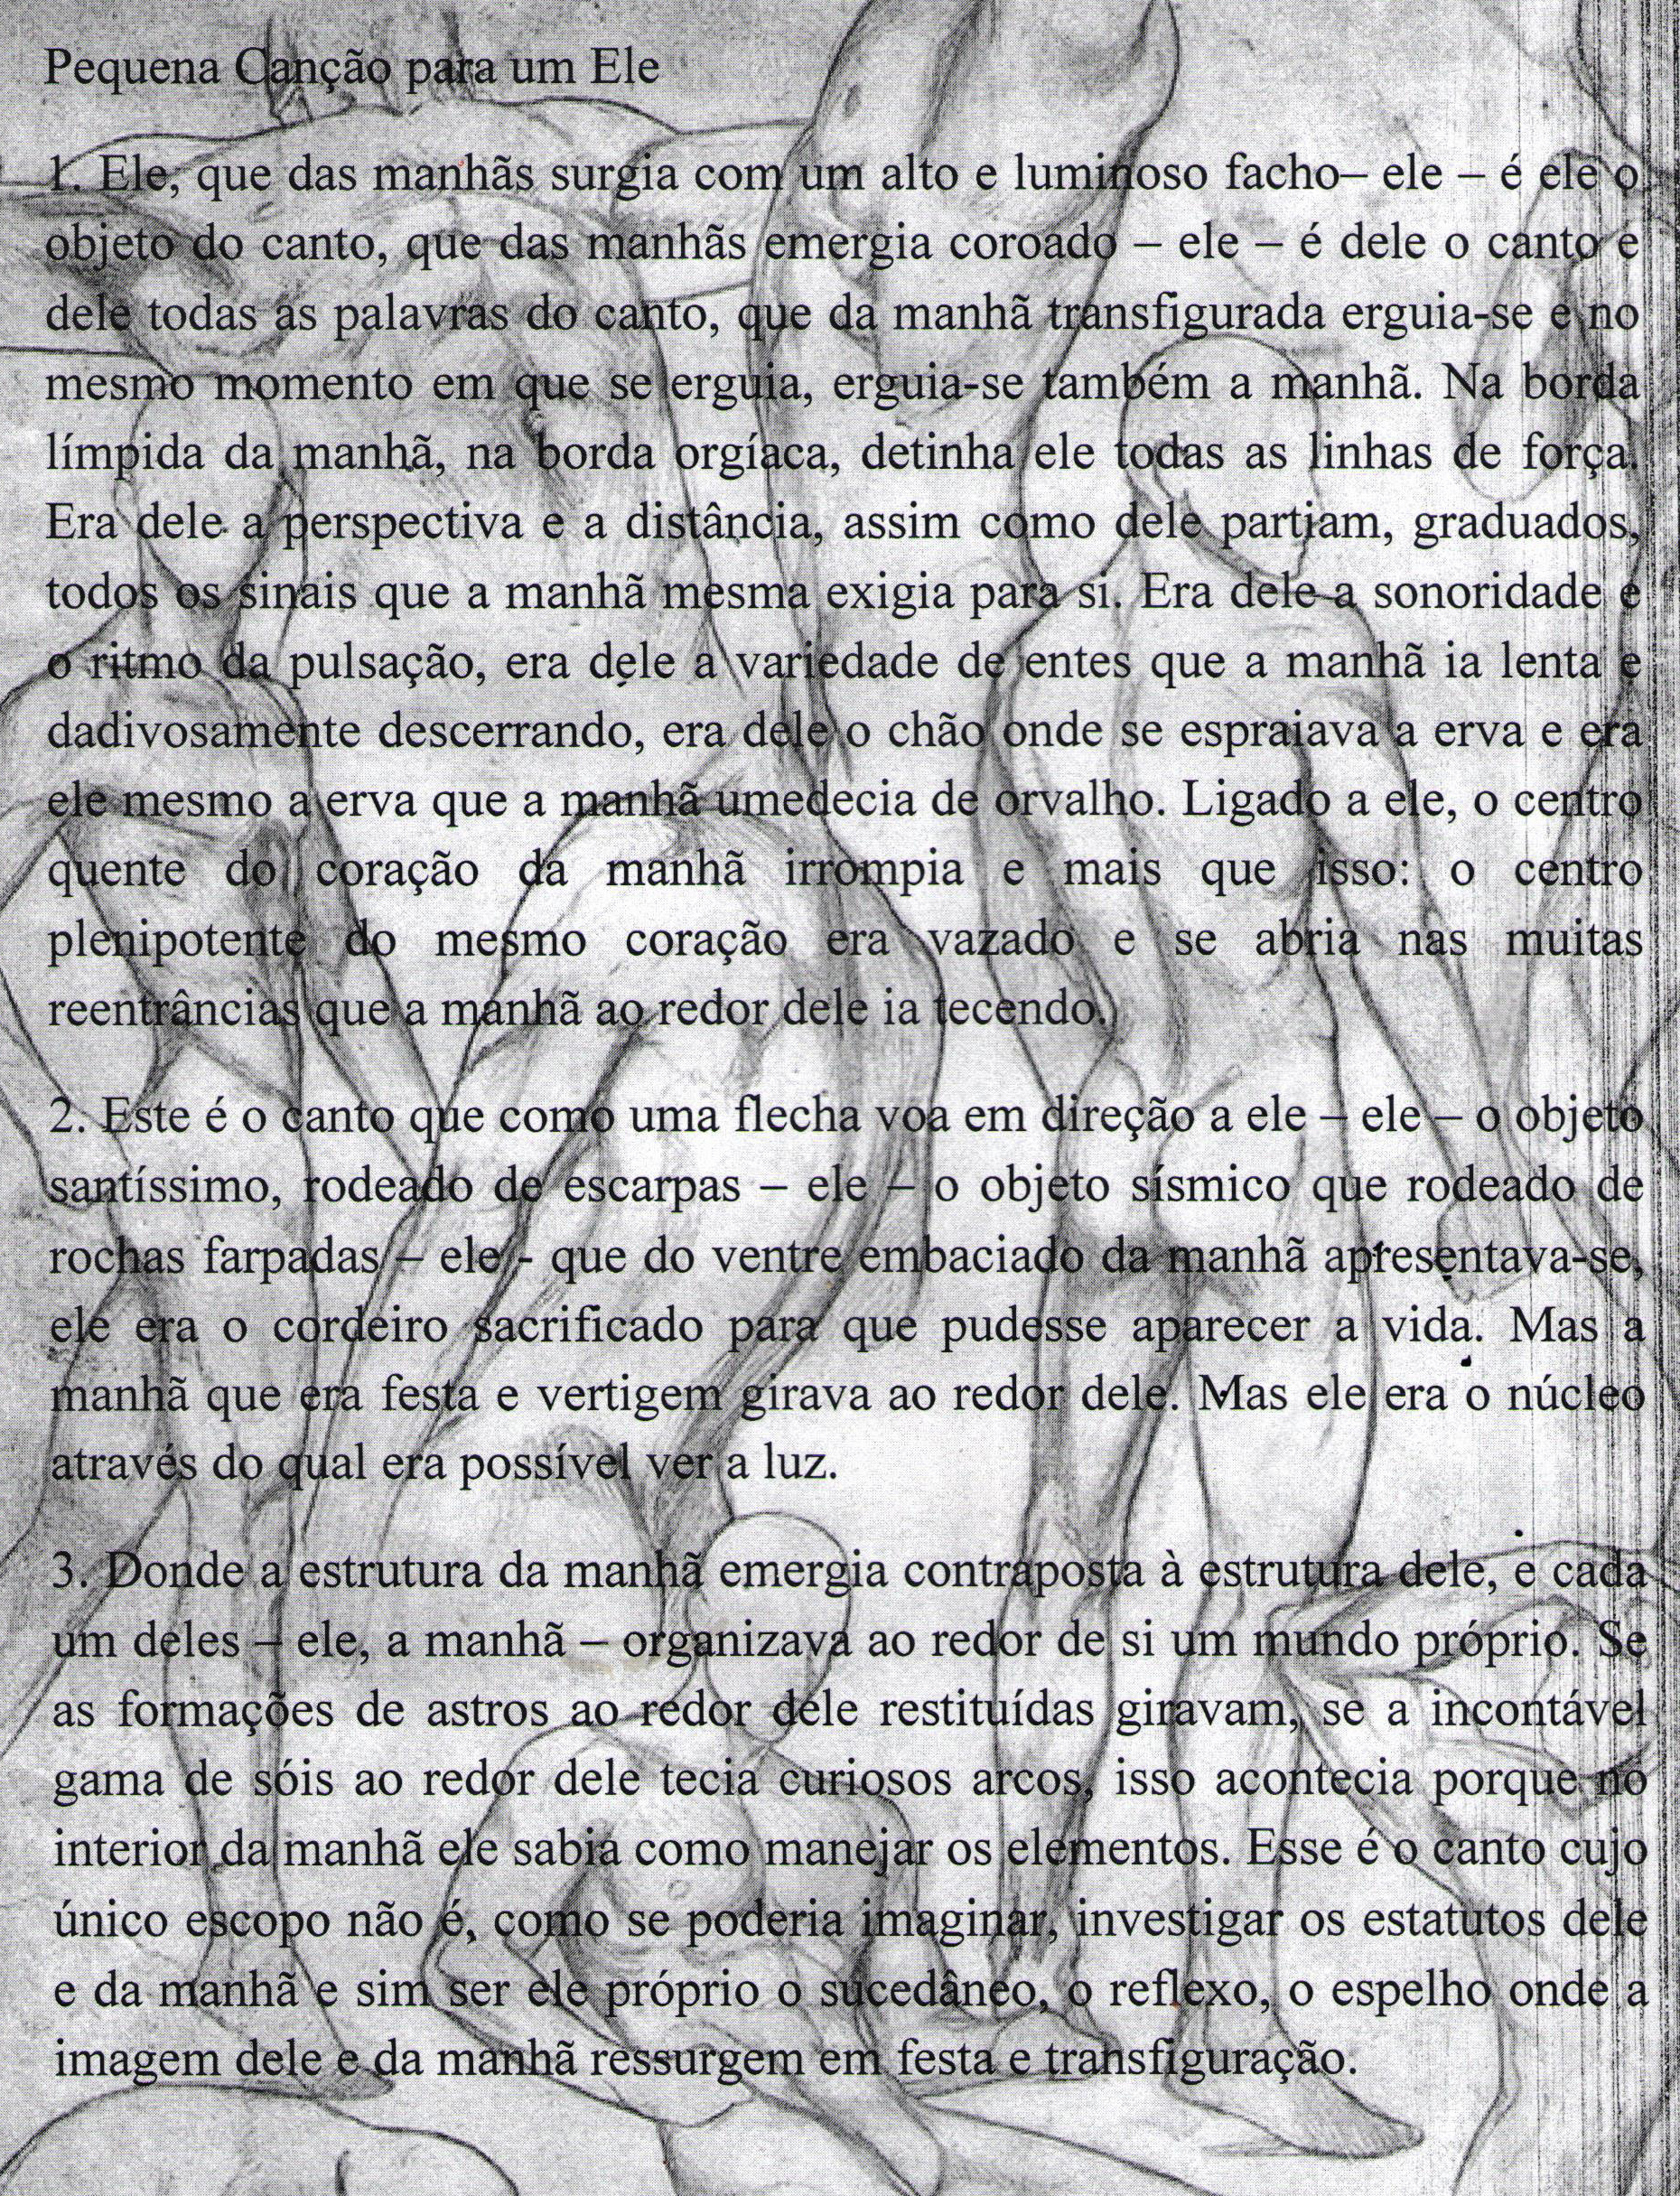 Pequena Canção para um Ele
1. Ele, que das manhãs surgia com um alto e luminoso facho– ele – é ele o
objeto do canto, que das manhãs emergia coroado – ele – é dele o canto e
dele todas as palavras do canto, que da manhã transfigurada erguia-se e no
mesmo momento em que se erguia, erguia-se também a manhã. Na borda
límpida da manhã, na borda orgíaca, detinha ele todas as linhas de força.
Era dele a perspectiva e a distância, assim como dele partiam, graduados,
todos os sinais que a manhã mesma exigia para si. Era dele a sonoridade e
o ritmo da pulsação, era dele a variedade de entes que a manhã ia lenta e
dadivosamente descerrando, era dele o chão onde se espraiava a erva e era
ele mesmo a erva que a manhã umedecia de orvalho. Ligado a ele, o centro
quente do coração da manhã irrompia e mais que isso: o centro
plenipotente do mesmo coração era vazado e se abria nas muitas
reentrâncias que a manhã ao redor dele ia tecendo.
2. Este é o canto que como uma flecha voa em direção a ele – ele – o objeto
santíssimo, rodeado de escarpas – ele – o objeto sísmico que rodeado de
rochas farpadas – ele - que do ventre embaciado da manhã apresentava-se,
ele era o cordeiro sacrificado para que pudesse aparecer a vida. Mas a
manhã que era festa e vertigem girava ao redor dele. Mas ele era o núcleo
através do qual era possível ver a luz.
3. Donde a estrutura da manhã emergia contraposta à estrutura dele, e cada
um deles – ele, a manhã – organizava ao redor de si um mundo próprio. Se
as formações de astros ao redor dele restituídas giravam, se a incontável
gama de sóis ao redor dele tecia curiosos arcos, isso acontecia porque no
interior da manhã ele sabia como manejar os elementos. Esse é o canto cujo
único escopo não é, como se poderia imaginar, investigar os estatutos dele
e da manhã e sim ser ele próprio o sucedâneo, o reflexo, o espelho onde a
imagem dele e da manhã ressurgem em festa e transfiguração.